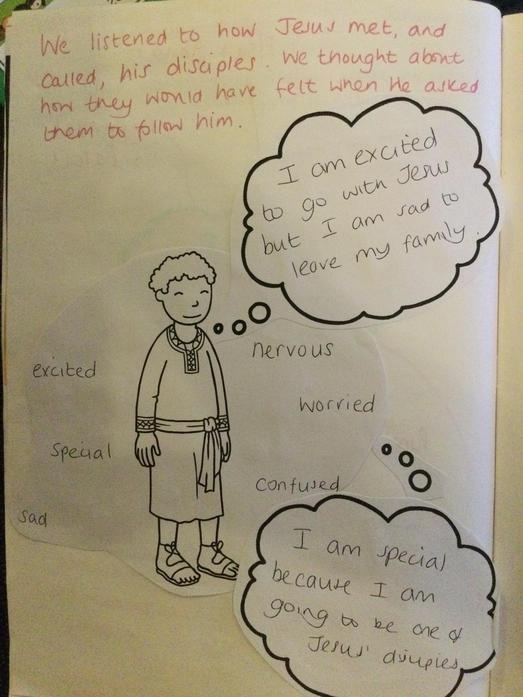 We listened to how Jesus met, and
called, his disciples. We thought about
how they would have felt when He asked
them to follow him.
I am excited
to go with Jesus
but I am sad to
leave my family.
nervous
excited
worried
special
confused
sad
I am special
because I am
going to be one of
Jesus' disciples